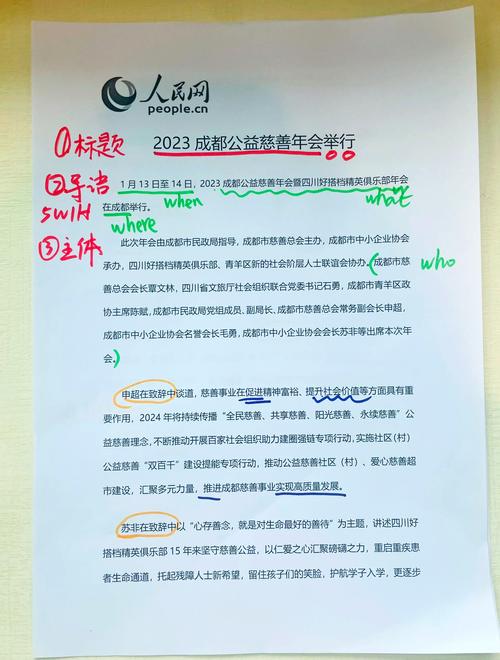 人民网
people.cn
2023 成都公益慈善年会举行
①标题
②导语
5W1H
③主体
1 月 13 日至 14 日，2023 成都公益慈善年会暨四川好搭档精英俱乐部年会
when
what
在成都举行。
where
此次年会由成都市民政局指导，成都市慈善总会主办，成都市中小企业协会
承办，四川好搭档精英俱乐部、青羊区新的社会阶层人士联谊会协办。(成都市慈
who
善总会会长覃文林，四川省文旅厅社会组织联合党委书记石勇，成都市青羊区政
协主席陈赋，成都市民政局党组成员、副局长、成都市慈善总会常务副会长申超，
成都市中小企业协会名誉会长毛勇，成都市中小企业协会会长苏非等出席本次年
会。)
申超在致辞中谈道，慈善事业在促进精神富裕、提升社会价值等方面具有重
要作用，2024 年将持续传播“全民慈善、共享慈善、阳光慈善、永续慈善”公
益慈善理念，不断推动开展百家社会组织助力建圈强链专项行动，实施社区(村)
公益慈善“双百千”建设提能专项行动，推动公益慈善社区（村）、爱心慈善超
市建设，汇聚多元力量，推进成都慈善事业实现高质量发展。
苏非在致辞中以“心存善念，就是对生命最好的善待”为主题，讲述四川好
搭档精英俱乐部 15 年来坚守慈善公益，以仁爱之心汇聚磅礴之力，重启重疾患
者生命通道，托起残障人士新希望，留住孩子们的笑脸，护航学子入学，更逐步